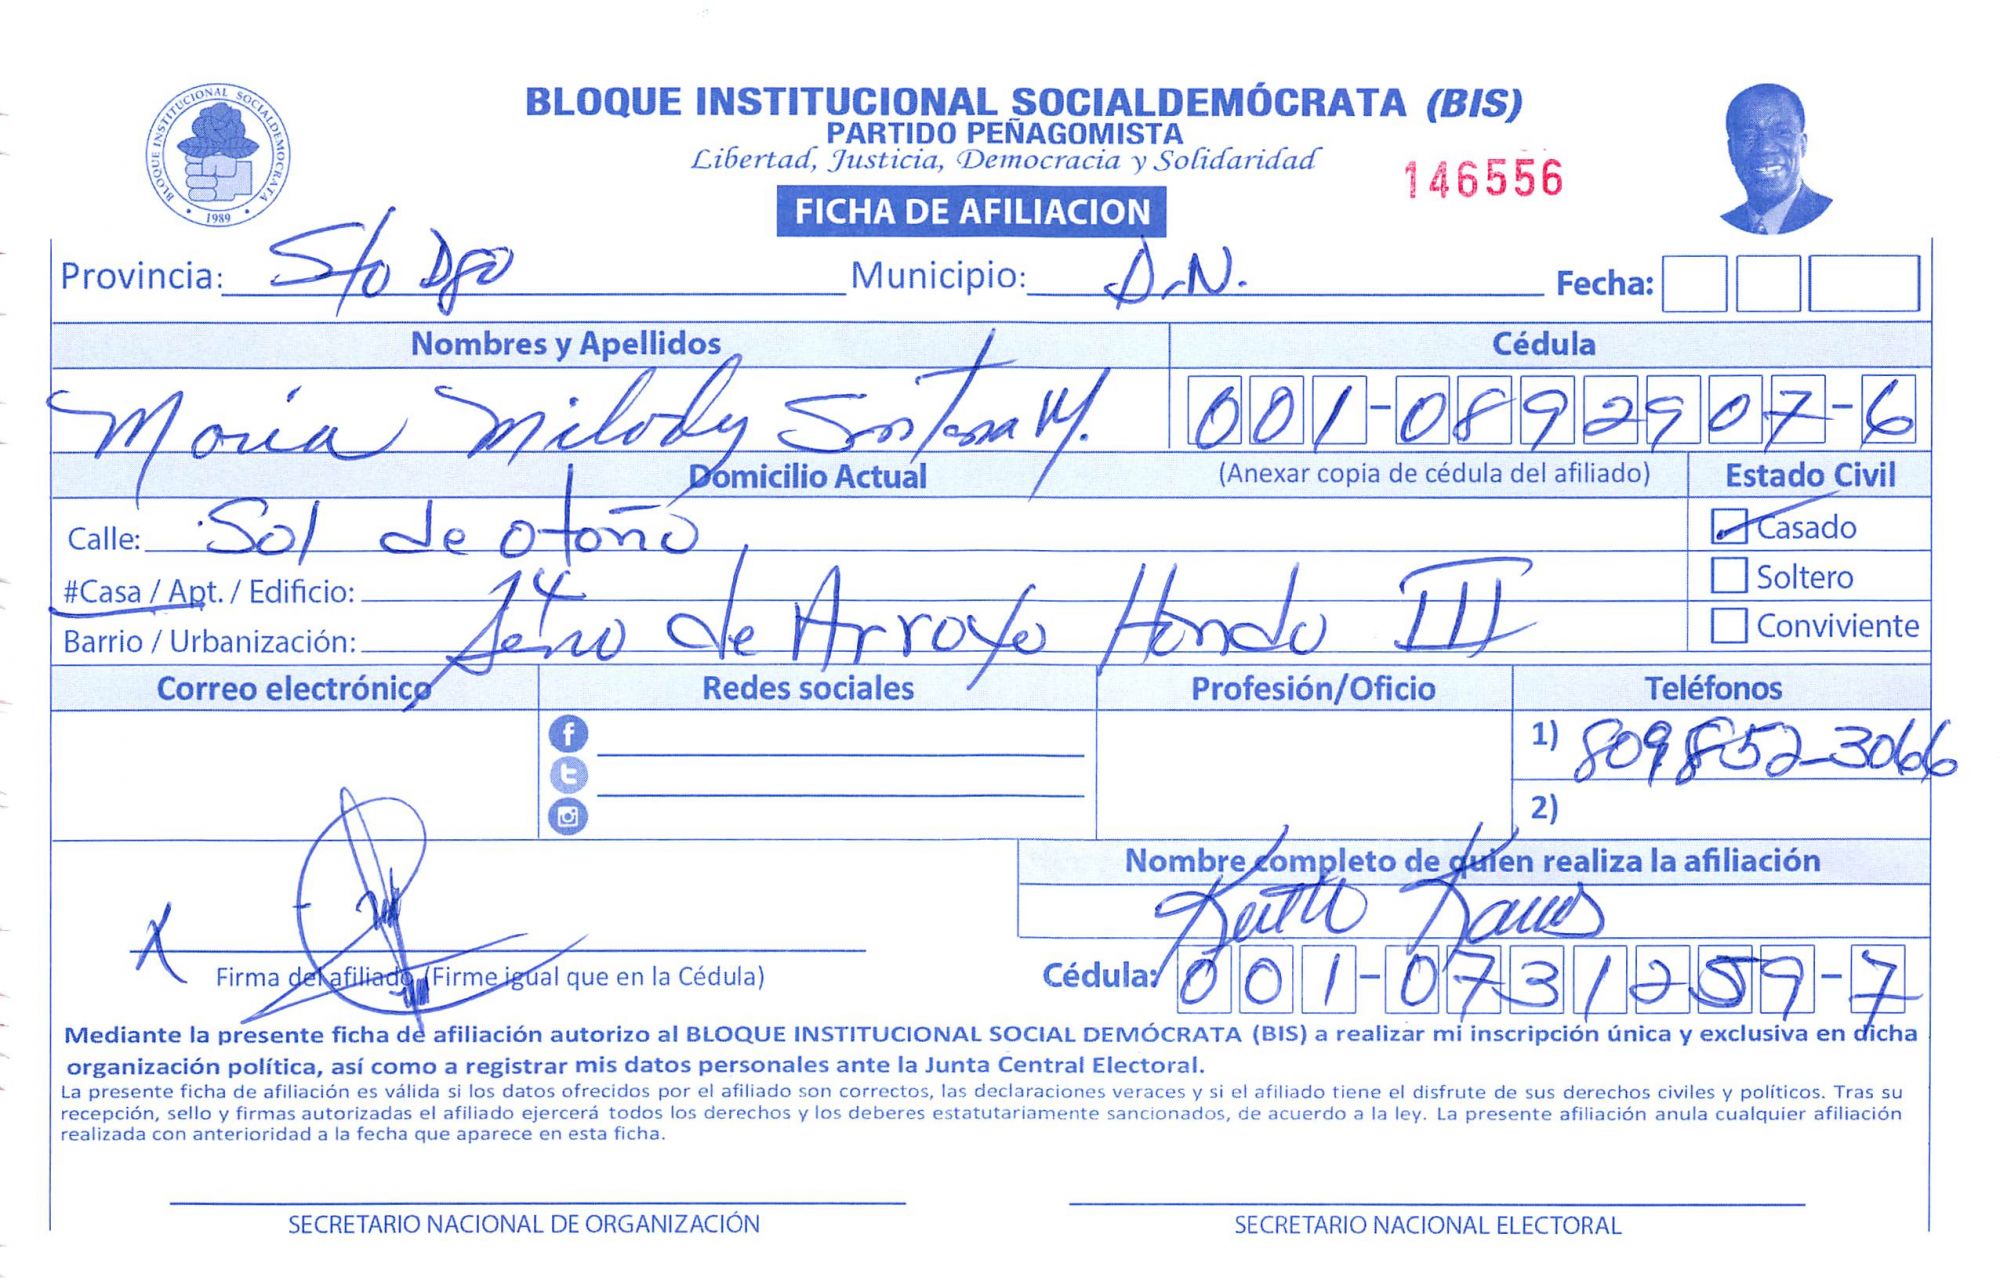 BLOQUE INSTITUCIONAL SOCIALDEMÓCRATA (BIS)
PARTIDO PEÑAGOMISTA
Libertad, Justicia, Democracia y Solidaridad
146556
BLOQUE INSTITUCIONAL SOCIALDEMOCRATA
1989
FICHA DE AFILIACION
Provincia: Sto Dgo Municipio: D.N. Fecha:
Nombres y Apellidos Cédula
Maria Milody Santana M. 001-0892907-6
Domicilio Actual (Anexar copia de cédula del afiliado) Estado Civil
Calle: Sol de otoño Casado
#Casa / Apt. / Edificio: 14 Soltero
Barrio / Urbanización: de Arroyo Hondo III Conviviente
Correo electrónico Redes sociales Profesión/Oficio Teléfonos
1) 809 852-3066
2)
Nombre completo de quien realiza la afiliación
Keith
X
Firma del afiliado (Firme igual que en la Cédula) Cédula: 001-0731259-7
Mediante la presente ficha de afiliación autorizo al BLOQUE INSTITUCIONAL SOCIAL DEMÓCRATA (BIS) a realizar mi inscripción única y exclusiva en dicha
organización política, así como a registrar mis datos personales ante la Junta Central Electoral.
La presente ficha de afiliación es válida si los datos ofrecidos por el afiliado son correctos, las declaraciones veraces y si el afiliado tiene el disfrute de sus derechos civiles y políticos. Tras su
recepción, sello y firmas autorizadas el afiliado ejercerá todos los derechos y los deberes estatutariamente sancionados, de acuerdo a la ley. La presente afiliación anula cualquier afiliación
realizada con anterioridad a la fecha que aparece en esta ficha.
SECRETARIO NACIONAL DE ORGANIZACIÓN SECRETARIO NACIONAL ELECTORAL